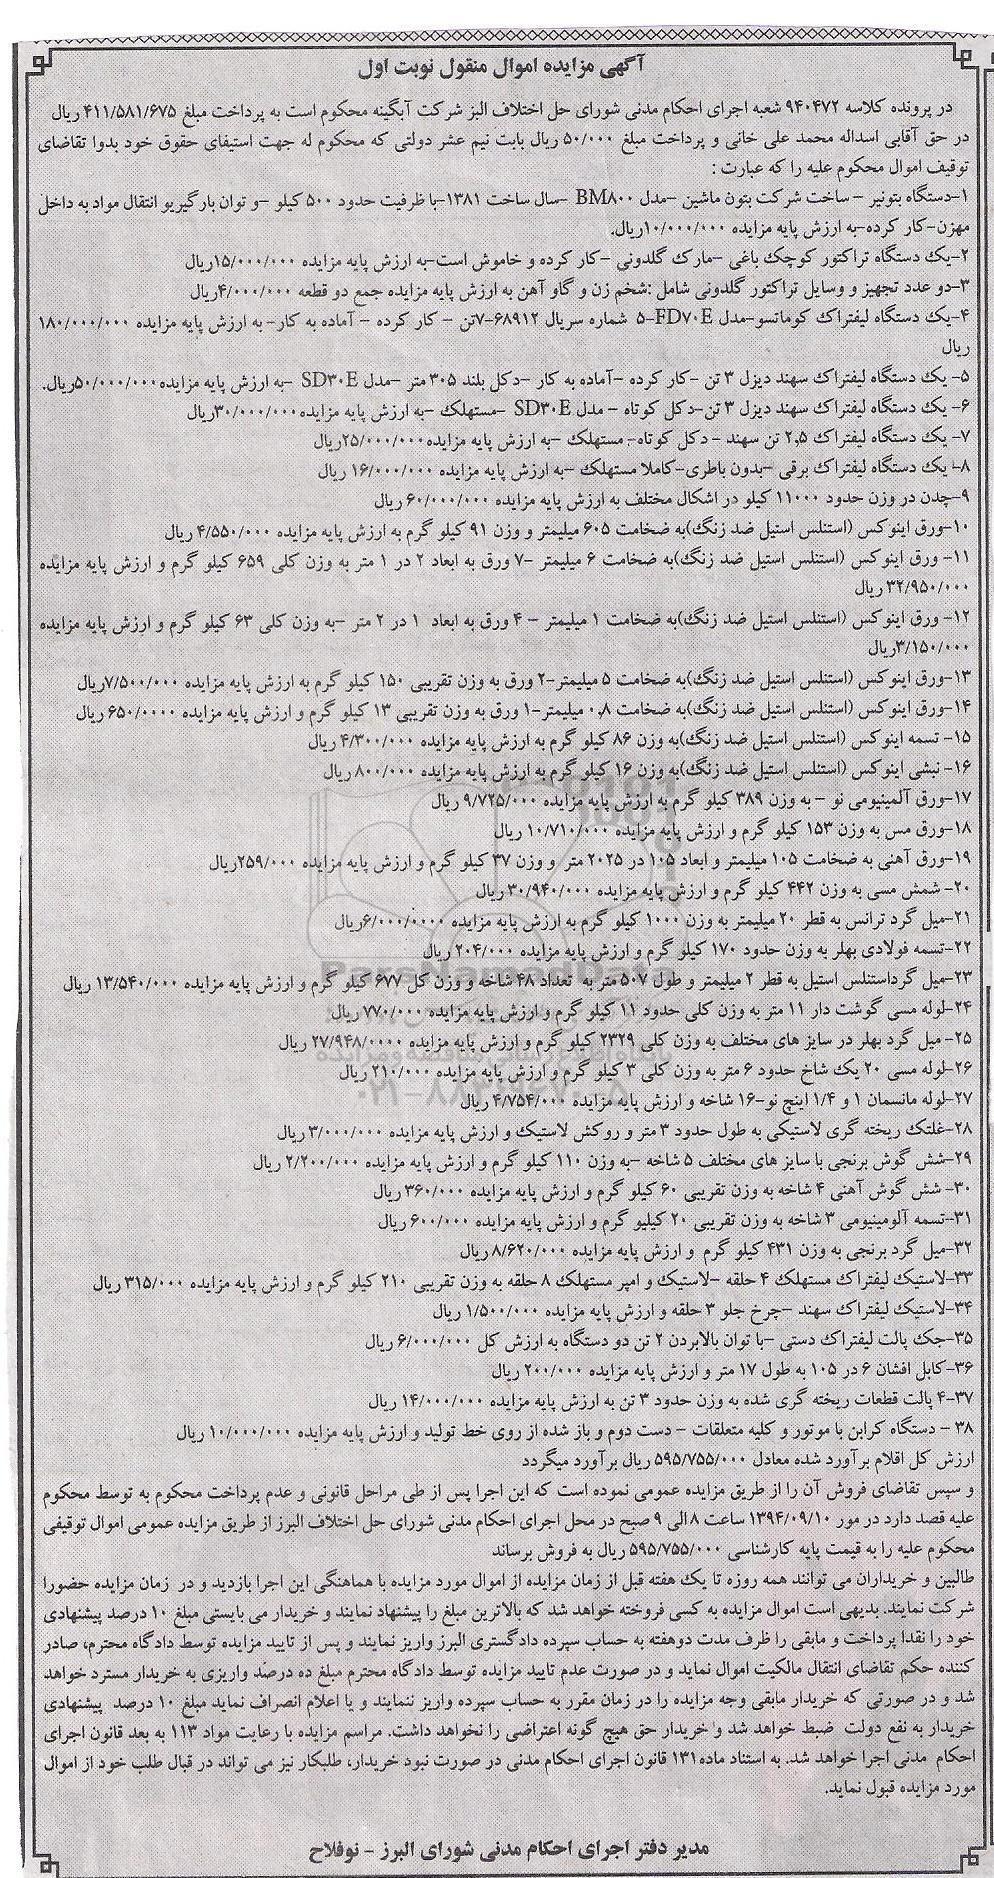 آگهی مزایده اموال منقول نوبت اول
در پرونده کلاسه ۹۴۰۴۷۲ شعبه اجرای احکام مدنی شورای حل اختلاف البز شرکت آبگینه محکوم است به پرداخت مبلغ ۴۱۱/۵۸۱/۶۷۵ ریال
در حق آقایی اسداله محمد علی خانی و پرداخت مبلغ ۵۰/۰۰۰ ریال بابت نیم عشر دولتی که محکوم له جهت استیفای حقوق خود بدوا تقاضای
توقیف اموال محکوم علیه را که عبارت :
۱-دستگاه بتونیر – ساخت شرکت بتون ماشین –مدل BM۸۰۰ –سال ساخت ۱۳۸۱-با ظرفیت حدود ۵۰۰ کیلو –و توان بارگیریو انتقال مواد به داخل
مهزن-کار کرده-به ارزش پایه مزایده ۱۰/۰۰۰/۰۰۰ریال.
۲-یک دستگاه تراکتور کوچک باغی –مارک گلدونی –کار کرده و خاموش است-به ارزش پایه مزایده ۱۵/۰۰۰/۰۰۰ریال
۳-دو عدد تجهیز و وسایل تراکتور گلدونی شامل :شخم زن و گاو آهن به ارزش پایه مزایده جمع دو قطعه ۴/۰۰۰/۰۰۰ریال
۴-یک دستگاه لیفتراک کوماتسو-مدل FD۷۰E-۵ شماره سریال ۶۸۹۱۲-۷تن – کار کرده – آماده به کار- به ارزش پایه مزایده ۱۸۰/۰۰۰/۰۰۰
ریال
۵- یک دستگاه لیفتراک سهند دیزل ۳ تن –کار کرده –آماده به کار –دکل بلند ۳۰۵ متر –مدل SD۳۰E –به ارزش پایه مزایده۵۰/۰۰۰/۰۰۰ریال.
۶- یک دستگاه لیفتراک سهند دیزل ۳ تن-دکل کوتاه – مدل SD۳۰E –مستهلک –به ارزش پایه مزایده۳۰/۰۰۰/۰۰۰ریال
۷- یک دستگاه لیفتراک ۲,۵ تن سهند – دکل کوتاه- مستهلک –به ارزش پایه مزایده۲۵/۰۰۰/۰۰۰ریال
۸- یک دستگاه لیفتراک برقی –بدون باطری-کاملا مستهلک –به ارزش پایه مزایده ۱۶/۰۰۰/۰۰۰ ریال
۹-چدن در وزن حدود ۱۱۰۰۰ کیلو در اشکال مختلف به ارزش پایه مزایده ۶۰/۰۰۰/۰۰۰ ریال
۱۰-ورق اینوکس (استنلس استیل ضد زنگ)به ضخامت ۶۰۵ میلیمتر و وزن ۹۱ کیلو گرم به ارزش پایه مزایده ۴/۵۵۰/۰۰۰ ریال
۱۱- ورق اینوکس (استنلس استیل ضد زنگ)به ضخامت ۶ میلیمتر –۷ ورق به ابعاد ۲ در ۱ متر به وزن کلی ۶۵۹ کیلو گرم و ارزش پایه مزایده
۳۲/۹۵۰/۰۰۰ ریال
۱۲- ورق اینوکس (استنلس استیل ضد زنگ)به ضخامت ۱ میلیمتر – ۴ ورق به ابعاد ۱ در ۲ متر –به وزن کلی ۶۳ کیلو گرم و ارزش پایه مزایده
۳/۱۵۰/۰۰۰ریال
۱۳-ورق اینوکس (استنلس استیل ضد زنگ)به ضخامت ۵ میلیمتر-۲ ورق به وزن تقریبی ۱۵۰ کیلو گرم به ارزش پایه مزایده ۷/۵۰۰/۰۰۰ریال
۱۴-ورق اینوکس (استنلس استیل ضد زنگ)به ضخامت ۰,۸ میلیمتر-۱ ورق به وزن تقریبی ۱۳ کیلو گرم و ارزش پایه مزایده ۶۵۰/۰۰۰۰ ریال
۱۵- تسمه اینوکس (استنلس استیل ضد زنگ)به وزن ۸۶ کیلو گرم به ارزش پایه مزایده ۴/۳۰۰/۰۰۰ ریال
۱۶- نبشی اینوکس (استنلس استیل ضد زنگ)به وزن ۱۶ کیلو گرم به ارزش پایه مزایده ۸۰۰/۰۰۰ ریال
۱۷-ورق آلمینیومی نو – به وزن ۳۸۹ کیلو گرم به ارزش پایه مزایده ۹/۷۲۵/۰۰۰ ریال
۱۸-ورق مس به وزن ۱۵۳ کیلو گرم و ارزش پایه مزایده ۱۰/۷۱۰/۰۰۰ ریال
۱۹-ورق آهنی به ضخامت ۱۰۵ میلیمتر و ابعاد ۱۰۵ در ۲۰۲۵ متر و وزن ۳۷ کیلو گرم و ارزش پایه مزایده ۲۵۹/۰۰۰ریال
۲۰- شمش مسی به وزن ۴۴۲ کیلو گرم و ارزش پایه مزایده ۳۰/۹۴۰/۰۰۰ ریال
۲۱-میل گرد ترانس به قطر ۲۰ میلیمتر به وزن ۱۰۰۰ کیلو گرم به ارزش پایه مزایده ۶/۰۰۰/۰۰۰۰ریال
۲۲-تسمه فولادی بهلر به وزن حدود ۱۷۰ کیلو گرم و ارزش پایه مزایده ۲۰۴/۰۰۰ ریال
۲۳-میل گرداستنلس استیل به قطر ۲ میلیمتر و طول ۵۰۷ متر به تعداد ۴۸ شاخه و وزن کل ۶۷۷ کیلو گرم و ارزش پایه مزایده ۱۳/۵۴۰/۰۰۰ ریال
۲۴-لوله مسی گوشت دار ۱۱ متر به وزن کلی حدود ۱۱ کیلو گرم و ارزش پایه مزایده ۷۷۰/۰۰۰ ریال
۲۵- میل گرد بهلر در سایز های مختلف به وزن کلی ۲۳۲۹ کیلو گرم و ارزش پایه مزایده ۲۷/۹۴۸/۰۰۰۰ ریال
۲۶-لوله مسی ۲۰ یک شاخ حدود ۶ متر به وزن کلی ۳ کیلو گرم و ارزش پایه مزایده ۲۱۰/۰۰۰ ریال
۲۷-لوله مانسمان ۱ و ۱/۴ اینچ نو-۱۶ شاخه و ارزش پایه مزایده ۴/۷۵۴/۰۰۰ ریال
۲۸-غلتک ریخته گری لاستیکی به طول حدود ۳ متر و روکش لاستیک و ارزش پایه مزایده ۳/۰۰۰/۰۰۰ ریال
۲۹-شش گوش برنجی با سایز های مختلف ۵ شاخه –به وزن ۱۱۰ کیلو گرم و ارزش پایه مزایده ۲/۲۰۰/۰۰۰ ریال
۳۰- شش گوش آهنی ۴ شاخه به وزن تقریبی ۶۰ کیلو گرم و ارزش پایه مزایده ۳۶۰/۰۰۰ ریال
۳۱-تسمه آلومینیومی ۳ شاخه به وزن تقریبی ۲۰ کیلیو گرم و ارزش پایه مزایده ۶۰۰/۰۰۰ ریال
۳۲-میل گرد برنجی به وزن ۴۳۱ کیلو گرم و ارزش پایه مزایده ۸/۶۲۰/۰۰۰ ریال
۳۳-لاستیک لیفتراک مستهلک ۴ حلقه –لاستیک و امپر مستهلک ۸ حلقه به وزن تقریبی ۲۱۰ کیلو گرم و ارزش پایه مزایده ۳۱۵/۰۰۰ ریال
۳۴-لاستیک لیفتراک سهند –چرخ جلو ۳ حلقه و ارزش پایه مزایده ۱/۵۰۰/۰۰۰ ریال
۳۵-جک پالت لیفتراک دستی –با توان بالابردن ۲ تن دو دستگاه به ارزش کل ۶/۰۰۰/۰۰۰ ریال
۳۶-کابل افشان ۶ در ۱۰۵ به طول ۱۷ متر و ارزش پایه مزایده ۲۰۰/۰۰۰ ریال
۳۷-۴ پالت قطعات ریخته گری شده به وزن حدود ۳ تن به ارزش پایه مزایده ۱۴/۰۰۰/۰۰۰ ریال
۳۸ – دستگاه کرابن با موتور و کلیه متعلقات – دست دوم و باز شده از روی خط تولید و ارزش پایه مزایده ۱۰/۰۰۰/۰۰۰ ریال
ارزش کل اقلام برآورد شده معادل ۵۹۵/۷۵۵/۰۰۰ ریال برآورد میگردد
و سپس تقاضای فروش آن را از طریق مزایده عمومی نموده است که این اجرا پس از طی مراحل قانونی و عدم پرداخت محکوم به توسط محکوم
علیه قصد دارد در مور ۱۳۹۴/۰۹/۱۰ ساعت ۸ الی ۹ صبح در محل اجرای احکام مدنی شورای حل اختلاف البرز از طریق مزایده عمومی اموال توقیفی
محکوم علیه را به قیمت پایه کارشناسی ۵۹۵/۷۵۵/۰۰۰ ریال به فروش برساند
طالبین و خریداران می توانند همه روزه تا یک هفته قبل از زمان مزایده از اموال مورد مزایده با هماهنگی این اجرا بازدید و در زمان مزایده حضورا
شرکت نمایند. بدیهی است اموال مزایده به کسی فروخته خواهد شد که بالاترین مبلغ را پیشنهاد نمایند و خریدار می بایستی مبلغ ۱۰ درصد پیشنهادی
خود را نقدا پرداخت و مابقی را ظرف مدت دوهفته به حساب سپرده دادگستری البرز واریز نمایند و پس از تایید مزایده توسط دادگاه محترم، صادر
کننده حکم تقاضای انتقال مالکیت اموال نماید و در صورت عدم تایید مزایده توسط دادگاه محترم مبلغ ده درصد واریزی به خریدار مسترد خواهد
شد و در صورتی که خریدار مابقی وجه مزایده را در زمان مقرر به حساب سپرده واریز ننمایند و یا اعلام انصراف نماید مبلغ ۱۰ درصد پیشنهادی
خریدار به نفع دولت ضبط خواهد شد و خریدار حق هیچ گونه اعتراضی را نخواهد داشت. مراسم مزایده با رعایت مواد ۱۱۳ به بعد قانون اجرای
احکام مدنی اجرا خواهد شد. به استناد ماده۱۳۱ قانون اجرای احکام مدنی در صورت نبود خریدار، طلبکار نیز می تواند در قبال طلب خود از اموال
مورد مزایده قبول نماید.
مدیر دفتر اجرای احکام مدنی شورای البرز – نوفلاح